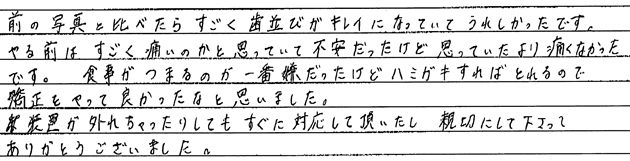 前の写真と比べたらすごく歯並びがキレイになっていてうれしかったです。
やる前はすごく痛いのかと思っていて不安だったけど思っていたより痛くなかった
です。 食事がつまるのが一番嫌だったけどハミガキすればとれるので
矯正をやって良かったなと思いました。
装置が外れちゃったりしてもすぐに対応して頂いたし 親切にして下さって
ありがとうございました。